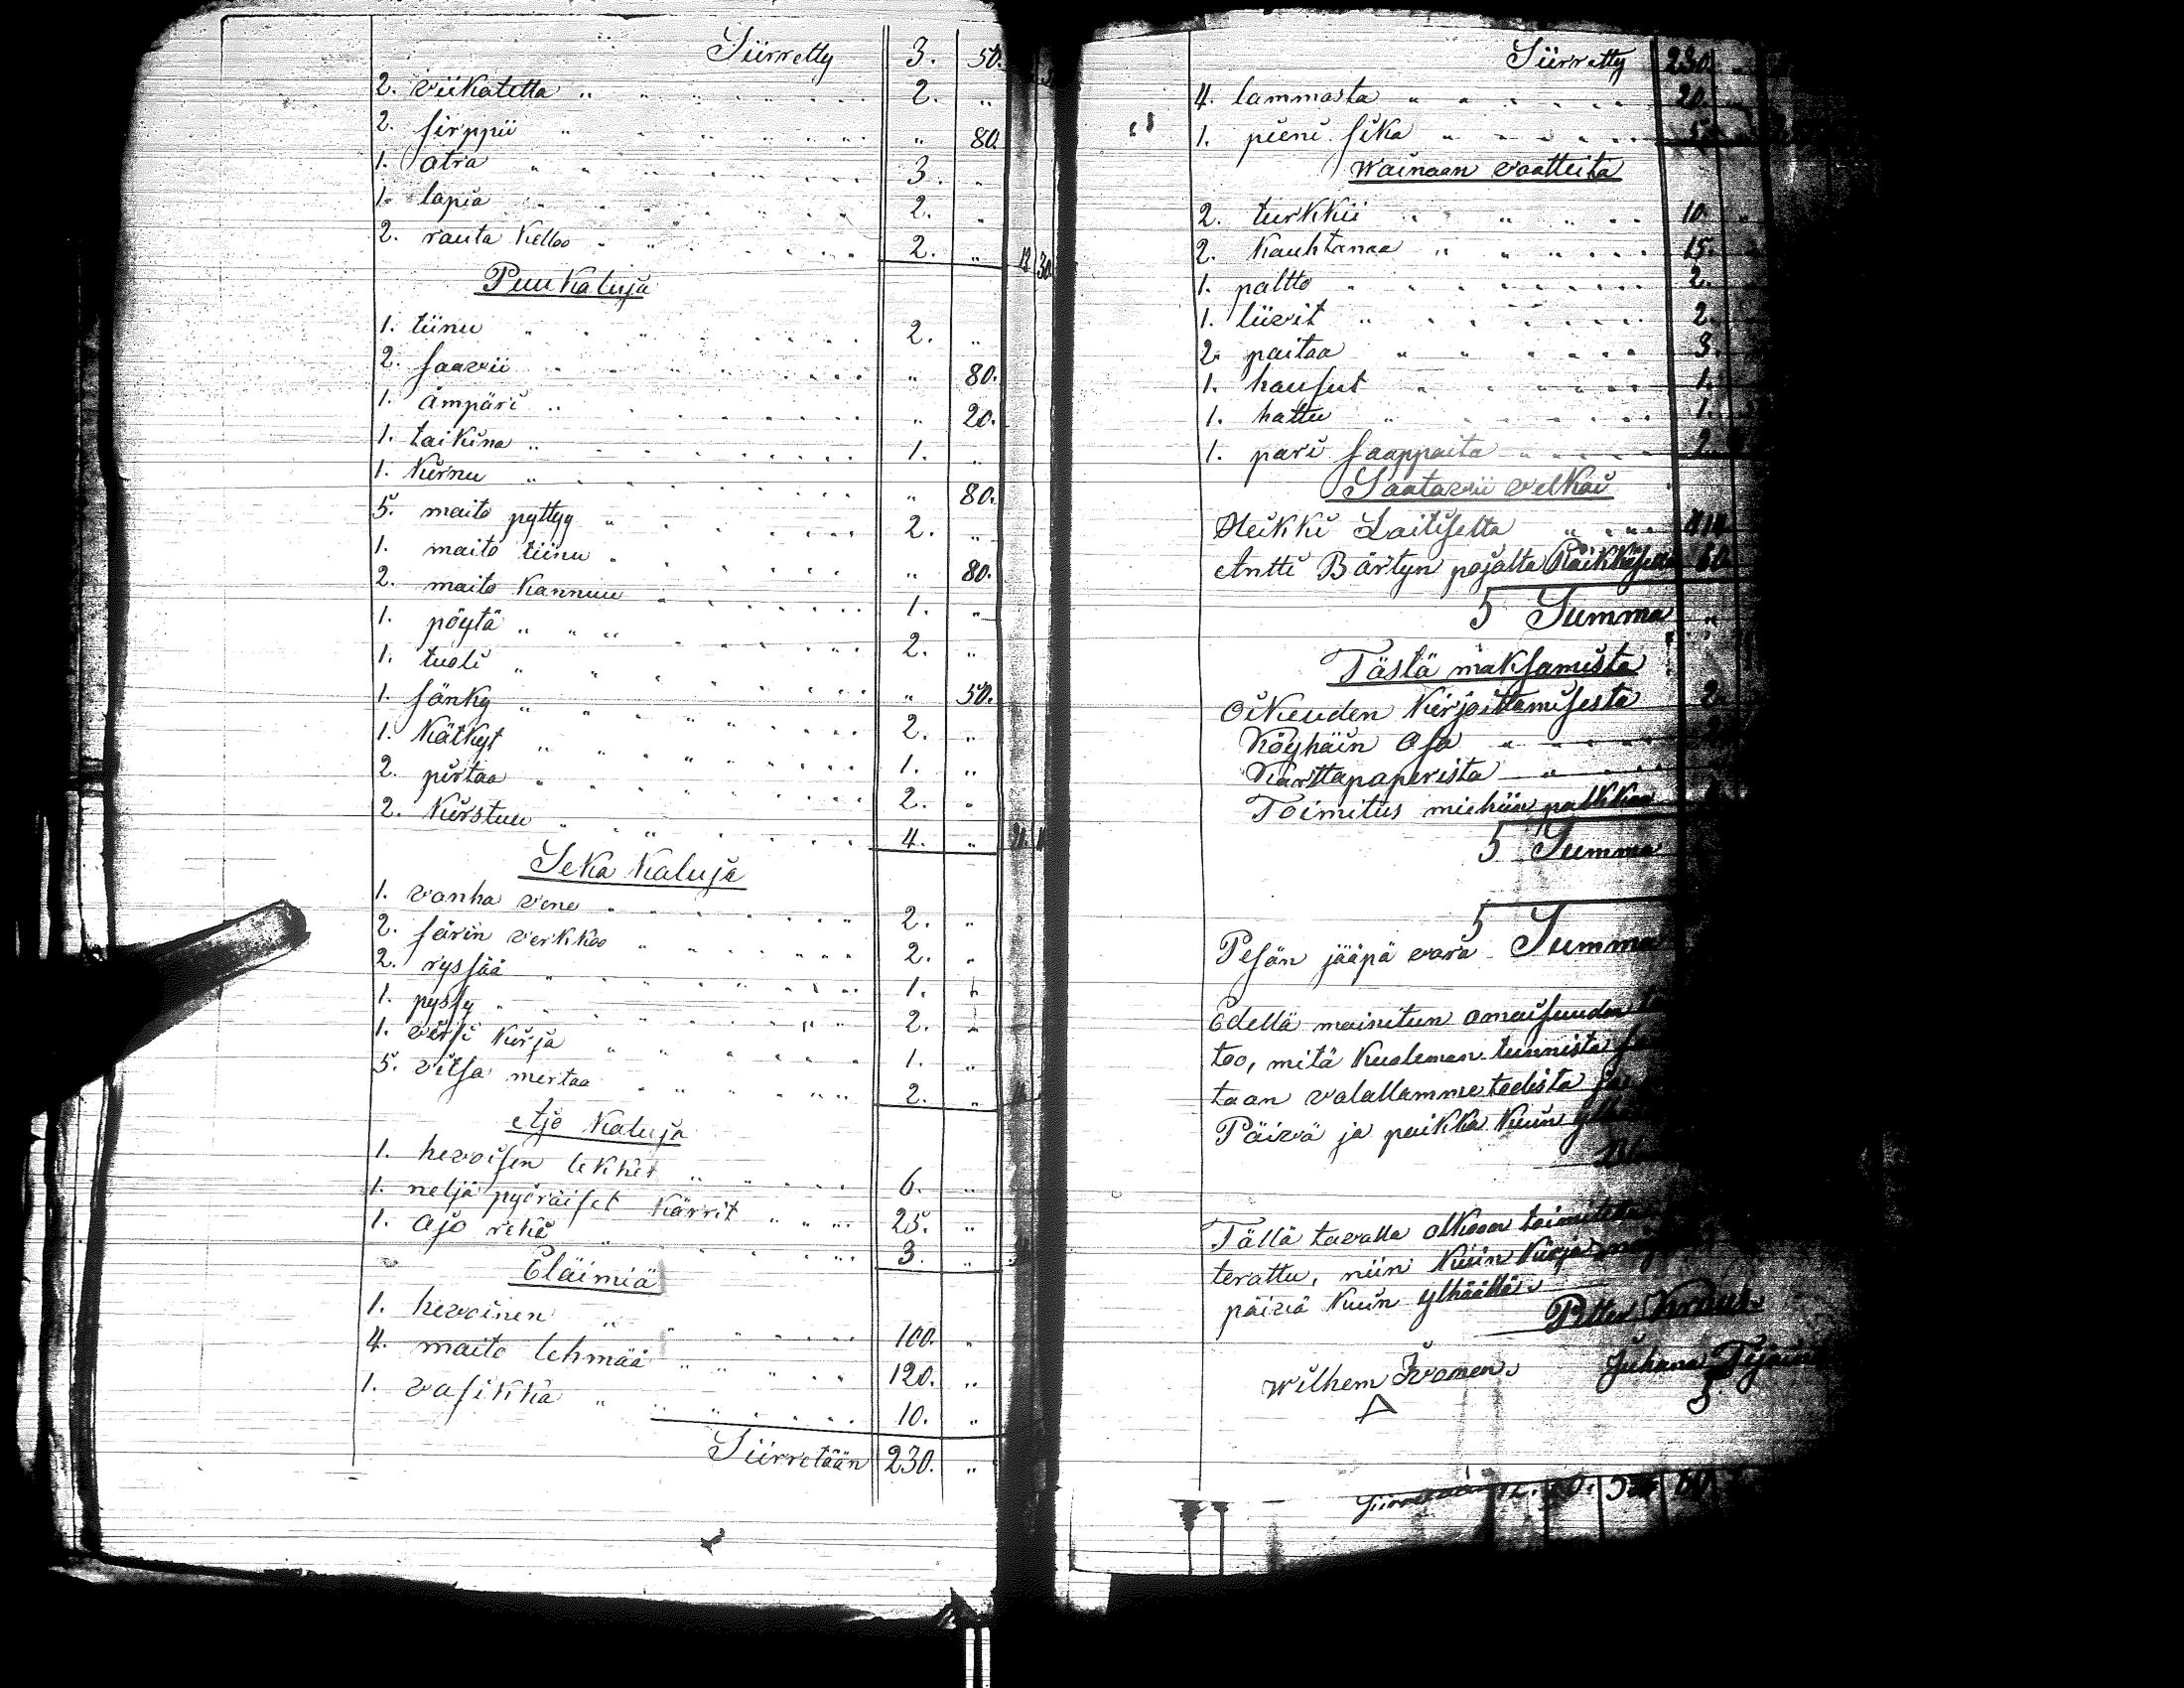 Siirretty 3. 50.
2. viikatetta " " " 2. "
2. sirppii " " " " 80.
1. atra " " " 3. "
1. lapia " " " 2. "
2. rauta kelloo " " 2. " 13 30
Puu kaluja
1. tiinu " " " 2. "
2. saavii " " " " 80.
1. ämpäri " " " " 20.
1. taikina " " " 1. "
1. kirnu " " " " 80.
5. maito pyttyy " " 2. "
1. maito tiinu " " " 80.
2. maito kannuu " " 1. "
1. pöytä " " " 2. "
1. tuoli " " " " 50.
1. sänky " " " 2. "
1. kätkyt " " " 1. "
2. pirtaa " " " 2. "
2. kirstuu " " " 4. "
Seka kaluja
1. vanha vene " " 2. "
2. särin verkkoo " " 2. "
2. ryssää " " " 1. "
1. pyssy " " " 2. "
1. virsi kirja " " 1. "
5. vitsa mertaa " " 2. "
Ajo kaluja
1. hevoisen lekket " " 6. "
1. neljä pyöräiset kärrit " " 25. "
1. ajo reki " " 3. "
Eläimiä
1. hevoinen " " " 100. "
4. maito lehmää " " 120. "
1. vasikka " " " 10. "
Siirretään 230. "
Siirretty 230. "
4. lammasta " " " 20. "
1. pieni sika " " " 5. "
Wainaan vaatteita
2. turkkii " " " 10. "
2. kauhtanaa " " " 15. "
1. paltto " " " 2. "
1. liivit " " " 2. "
2. paitaa " " " 3. "
1. housut " " " 1. "
1. hattu " " " 1. "
1. pari saappaita " " 2. "
Saatavii velkoi
Heikki Laitiselta " "
Antti Bärtyn pojalta 60
5 Summa "
Tästä maksamista
Oikeuden kirjoittamisesta 2.
Köyhäin osa "
Karttapaperista "
Toimitus miehiin palkkaa
5 Summa
5
Pesän jääpä vara Summa
Edellä mainitun omaisuuden
too, mitä kuoleman tunnista
taan valallamme todista
Päivä ja paikka kuin
Tällä tavalla olkoon
terattu, niin kuin kirja
päivä kuin ylhäällä.
Petter
Wilhem Ivonen. Juhana